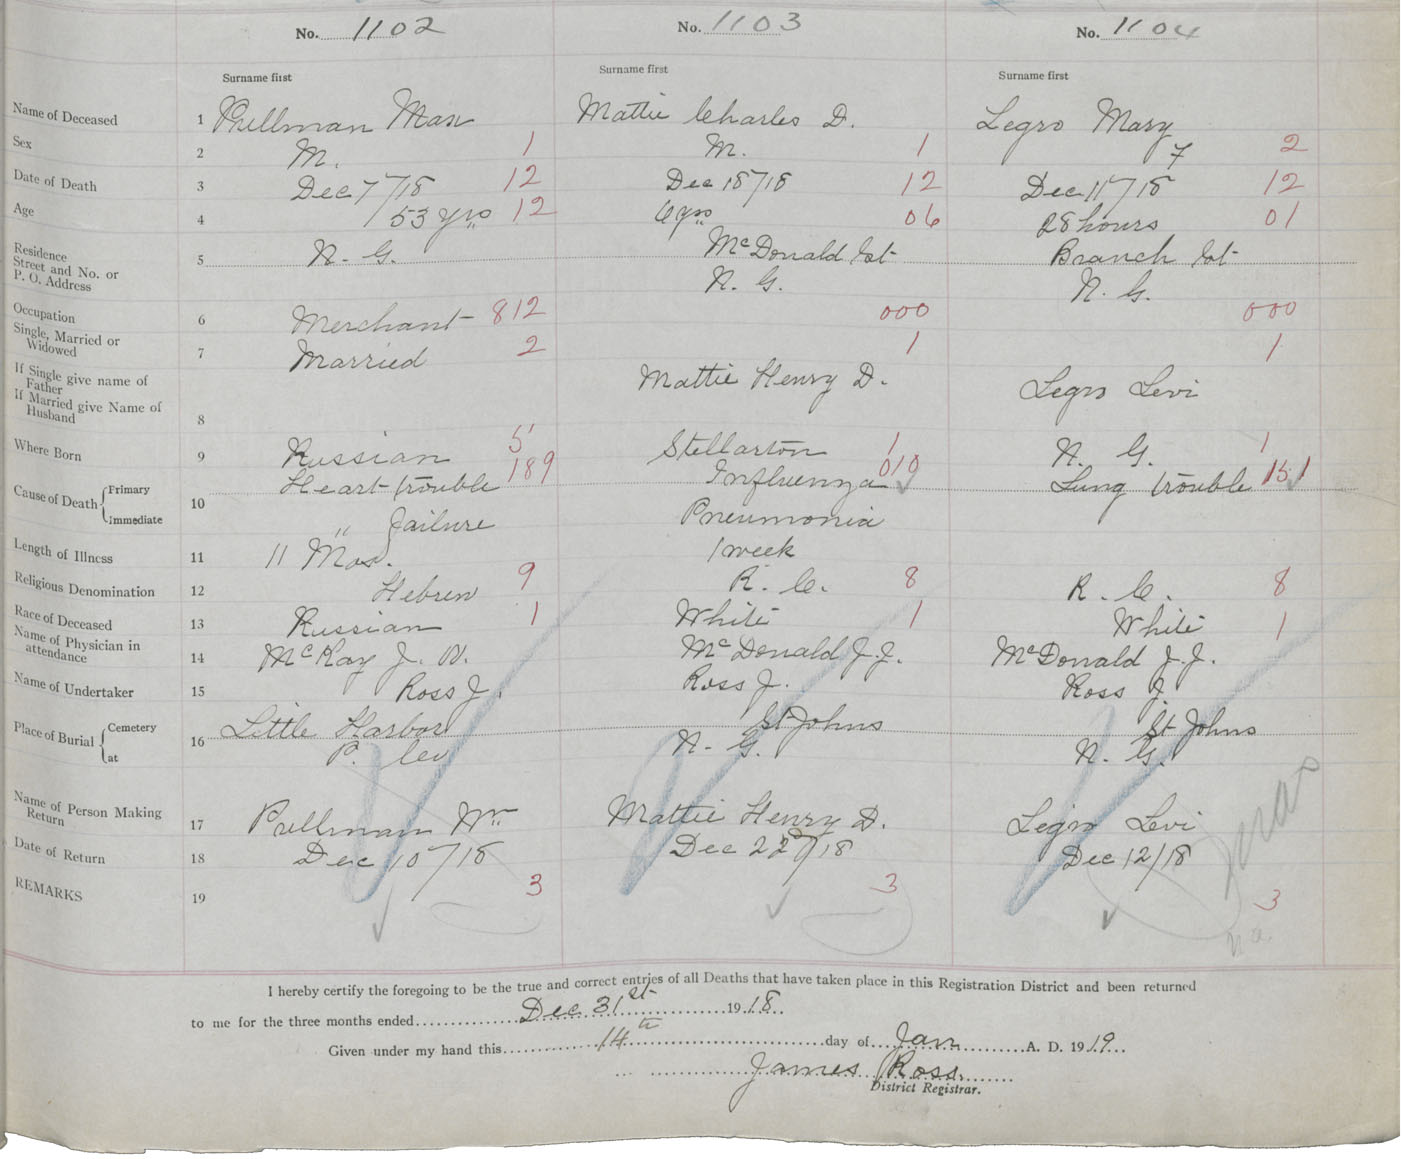 No. 1102 No. 1103 No. 1104
Surname first Surname first Surname first
Name of Deceased 1 Pullman Max Mattie Charles D. Legro Mary
Sex 2 M. 1 M. 1 F 2
Date of Death 3 Dec 7/18 12 Dec 18/18 12 Dec 11/18 12
Age 4 53 yrs 12 6 yrs 06 28 hours 01
Residence
Street and No. or
P. O. Address 5 N. G. McDonald St Branch St
N. G. N. G.
Occupation 6 Merchant 812 000 000
Single, Married or
Widowed 7 Married 2 1 1
If Single give name of
Father Mattie Henry D. Legro Levi
If Married give Name of
Husband 8
Where Born 9 Russian 5 Stellarton 1 N. G. 1
Cause of Death Primary 10 Heart trouble 189 Influenza 010 Lung trouble 151
Immediate " Failure Pneumonia
Length of Illness 11 11 Mos. 1 week
Religious Denomination 12 Hebrew 9 R. C. 8 R. C. 8
Race of Deceased 13 Russian 1 White 1 White 1
Name of Physician in
attendance 14 McKay J. W. McDonald J. J. McDonald J. J.
Name of Undertaker 15 Ross J. Ross J. Ross J
Place of Burial Cemetery 16 Little Harbor St Johns St Johns
at P. Co N. G. N. G.
Name of Person Making
Return 17 Pullman Wm Mattie Henry D. Legro Levi
Date of Return 18 Dec 10/18 Dec 22/18 Dec 12/18
REMARKS 19 3 3 3
n a
I hereby certify the foregoing to be the true and correct entries of all Deaths that have taken place in this Registration District and been returned
to me for the three months ended Dec 31st 1918
Given under my hand this 14th day of Jan A. D. 1919
James Ross
District Registrar.